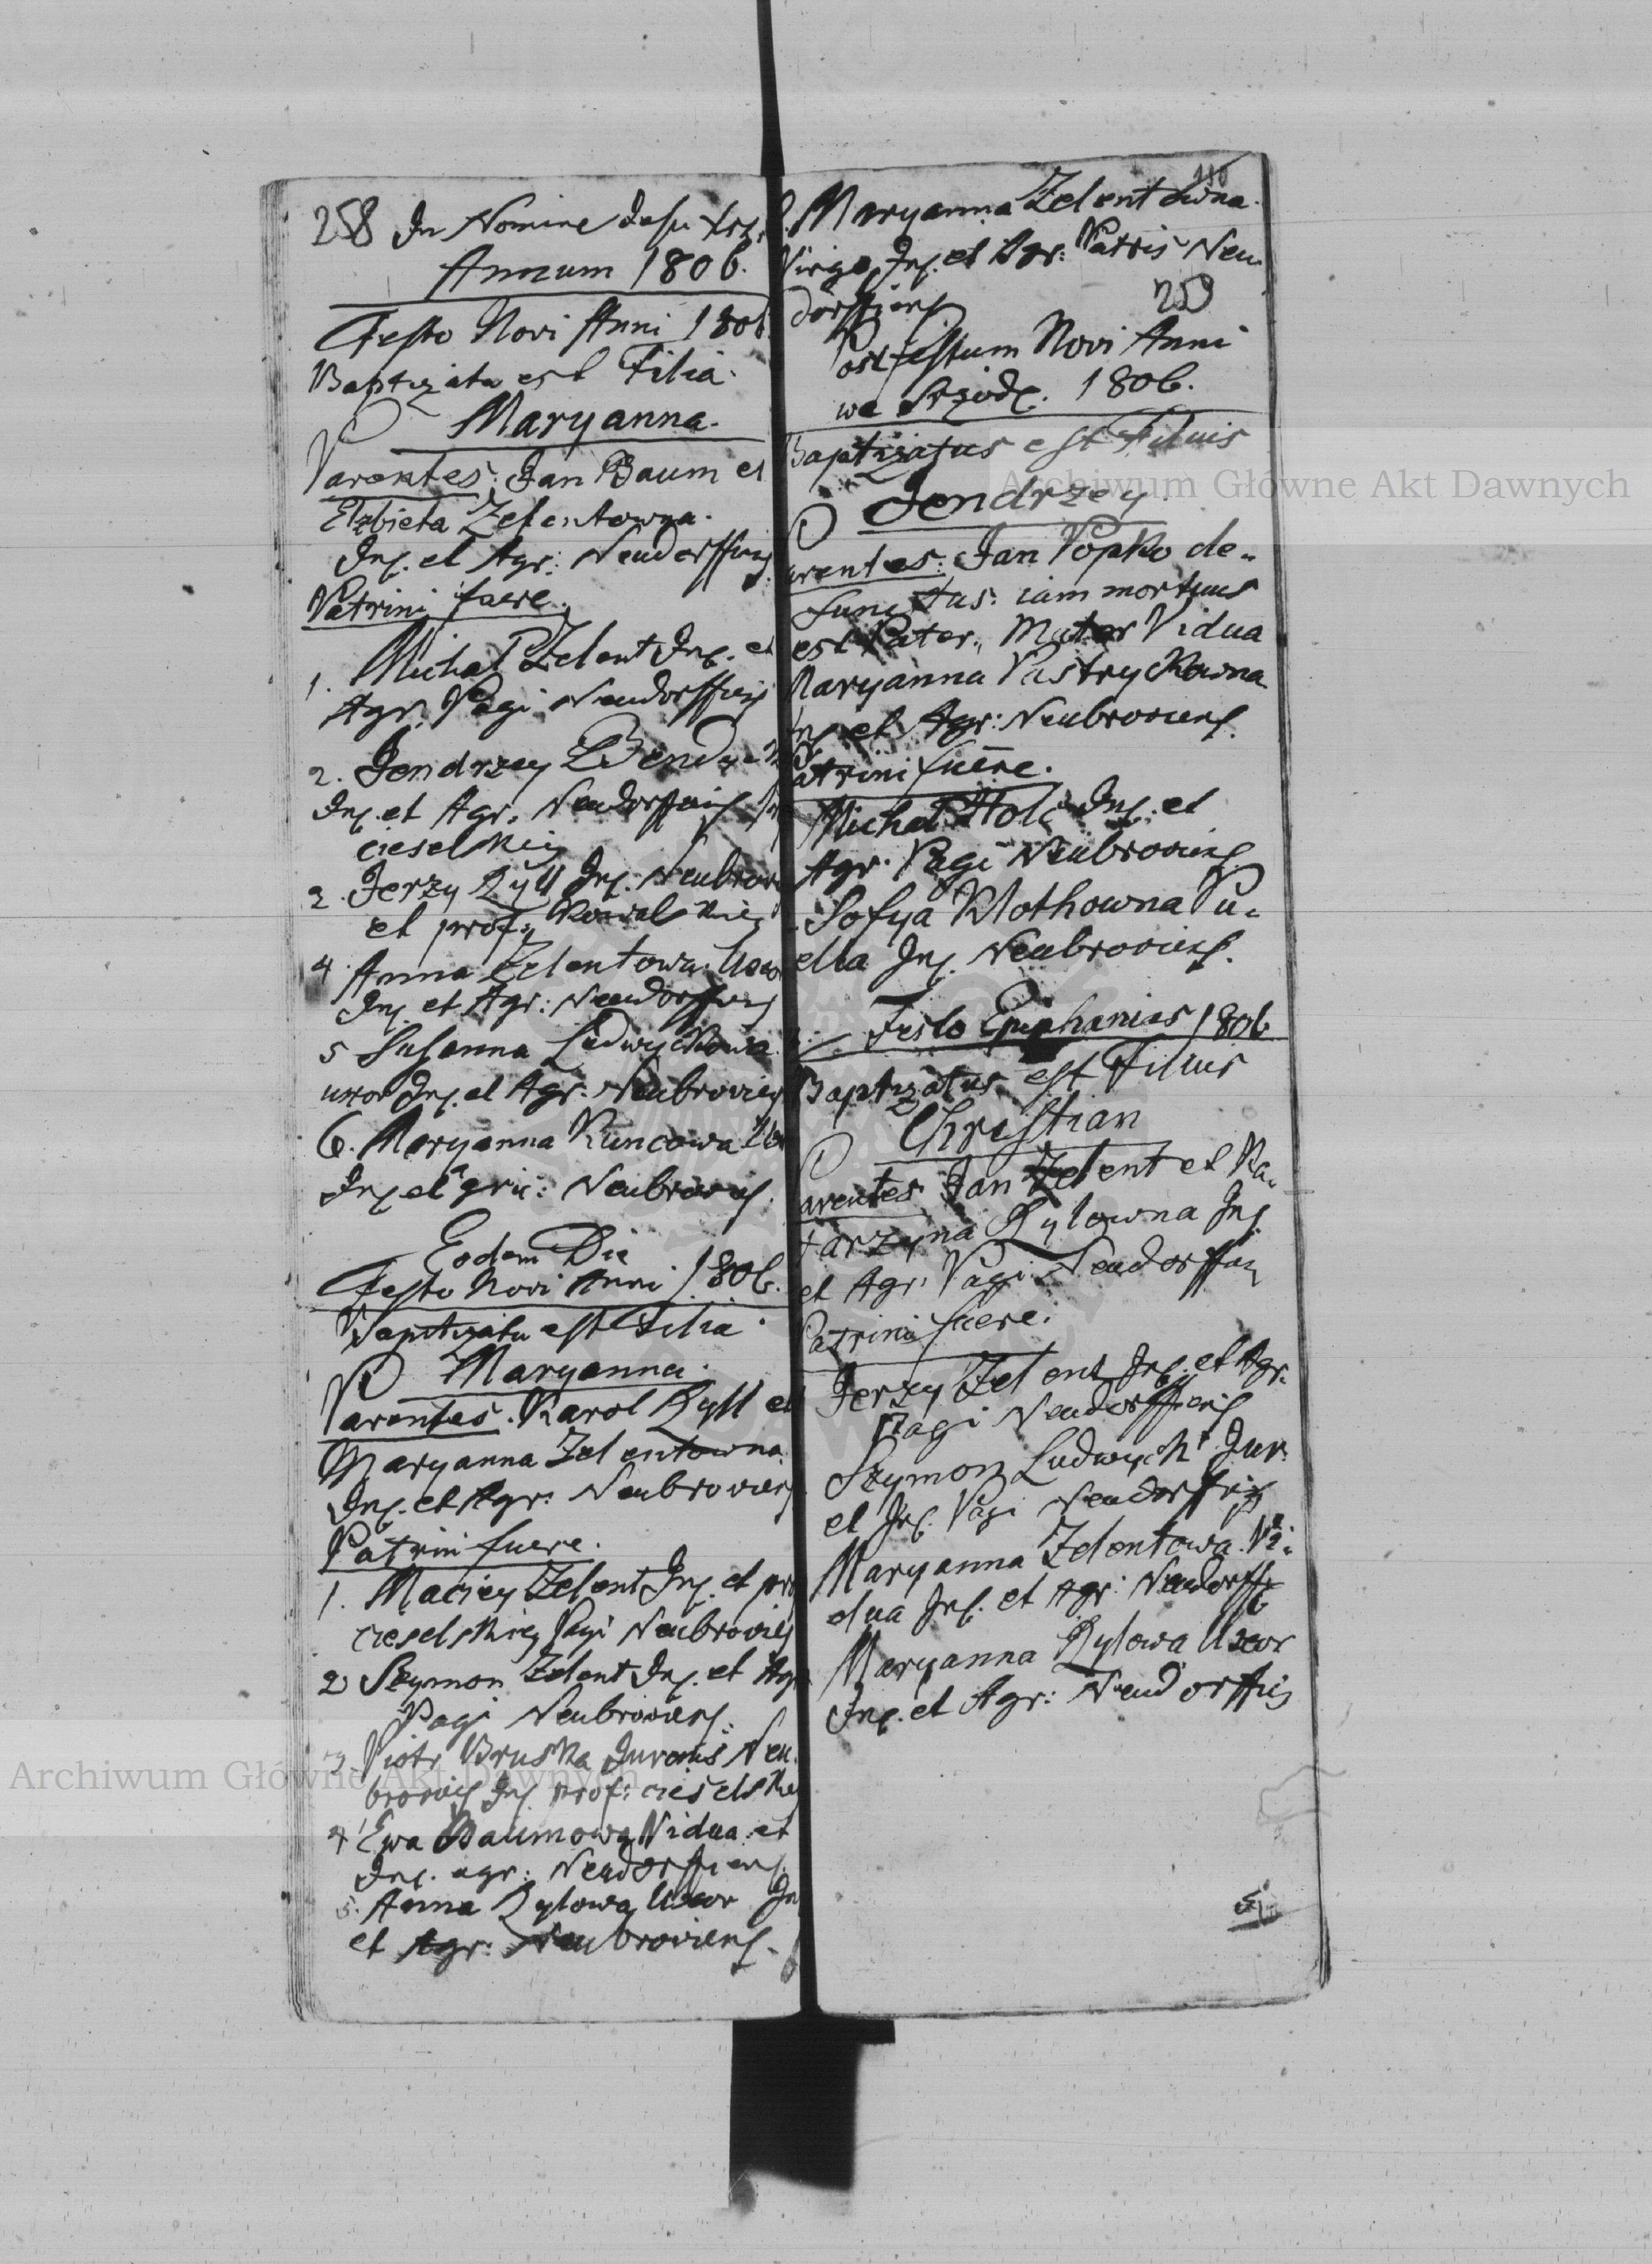 258 In Nomine Jesu
Annum 1806.
Festo Novi Anni 1806
Baptizata est Filia.
Maryanna.
Parentes: Jan Baum et
Elzbieta Zelentowna.
Inq. et Agr: Neudorffiens
Patrini fuere.
1. Michal Zelent Inq. et
Agr. Pagi Neudorffiens
2. Jendrzey
Inq. et Agr. Neudorffiens
cieselskiey
2. Jerzy Ryll Inq. Neubrow
et prof. Kowalskiey
4. Anna Zelentowa. Uxo
Inq. et Agr: Neudorffiens
5 Susanna Ludwyckowa
uxor Inq. et Agr: Neubroviens
6. Maryanna Kuncowa
Inq et agric: Neubroviens.
Eodem Die
Festo Novi Anni 1806.
Baptizata est Filia.
Maryanna.
Parentes. Karol Ryll et
Maryanna Zelentowna.
Inq. et Agr: Neubroviens
Patrini fuere.
1. Maciey Zelent Inq. et pro
cieselskiey Pagi Neubroviens
2 Szymon Zelent Inq. et Agr
Pagi Neubroviens.
3. Piotr Bruska Juvenis Neu
broviens Inq prof: cieselskiey
4 Ewa Baumowa Vidua et
Inq. agr: Neudorffiens.
5. Anna Rylowa Uxor In
et Agr: Neubroviens.
110
Maryanna Zelentowna.
Virgo, Inq. et Agr: Patris Neu
dorffiens
259
Post festum Novi Anni
we Srzode. 1806.
Baptizatus est Filius
Jendrzey.
Parentes: Jan Popko de„
functus: iam mortuus
est Pater„ Mater Vidua
Maryanna Pastryckowna
Inq et Agr: Neubroviens.
Patrini fuere.
Michal Inq. et
Agr. Pagi Neubroviens
Sofya Klothowna Pu„
ella Inq. Neubroviens.
Festo Epiphanias 1806
Baptizatus est Filius
Christian
Parentes Jan Zelent et Ka„
tarzyna Rylowna Inq.
et Agr. Pagi Neudorffiens
Patrini fuere.
Jerzy Zelent Inq. et Agr.
Pagi Neudorffiens
Szymon Ludwych Juv.
et Inq. Pagi Neudorffiens
Maryanna Zelentowa. Vi„
dua Inq. et Agr: Neudorffi
Maryanna Rylowa Uxor
Inq. et Agr: Neudorffiens
Archiwum Główne Akt Dawnych
Archiwum Główne Akt Dawnych